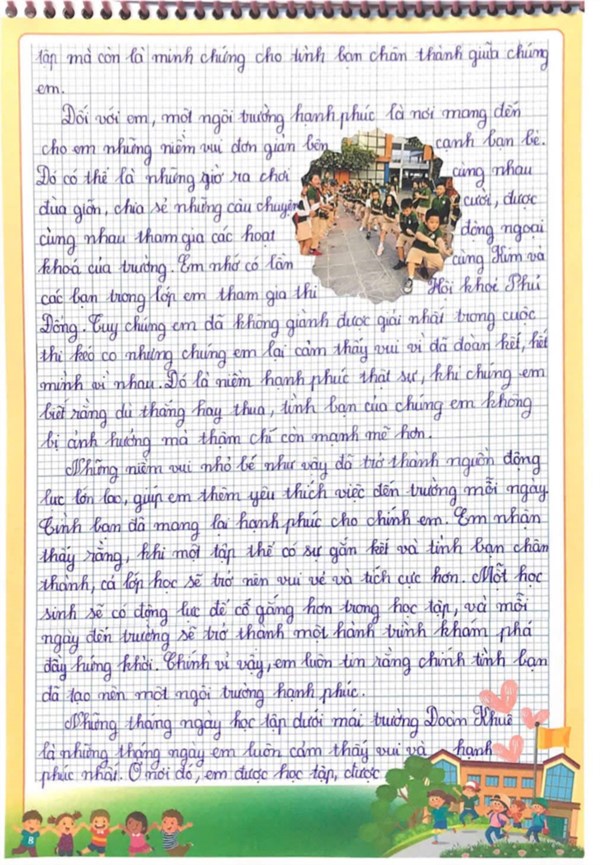 tập mà còn là minh chứng cho tình bạn chân thành giữa chúng
em.
Đối với em, một ngôi trường hạnh phúc là nơi mang đến
cho em những niềm vui đơn giản bên cạnh bạn bè.
Đó có thể là những giờ ra chơi cùng nhau
đùa giỡn, chia sẻ những câu chuyện cười, được
cùng nhau tham gia các hoạt động ngoại
khoá của trường. Em nhớ có lần cùng Kim và
các bạn trong lớp em tham gia thi Hội khoẻ Phù
Đổng. Tuy chúng em đã không giành được giải nhất trong cuộc
thi kéo co nhưng chúng em lại cảm thấy vui vì đã đoàn kết, hết
mình vì nhau. Đó là niềm hạnh phúc thật sự, khi chúng em
biết rằng dù thắng hay thua, tình bạn của chúng em không
bị ảnh hưởng mà thậm chí còn mạnh mẽ hơn.
Những niềm vui nhỏ bé như vậy đã trở thành nguồn động
lực lớn lao, giúp em thêm yêu thích việc đến trường mỗi ngày
Tình bạn đã mang lại hạnh phúc cho chính em. Em nhận
thấy rằng, khi một tập thể có sự gắn kết và tình bạn chân
thành, cả lớp học sẽ trở nên vui vẻ và tích cực hơn. Một học
sinh sẽ có động lực để cố gắng hơn trong học tập, và mỗi
ngày đến trường sẽ trở thành một hành trình khám phá
đầy hứng khởi. Chính vì vậy, em luôn tin rằng chính tình bạn
đã tạo nên một ngôi trường hạnh phúc.
Những tháng ngày học tập dưới mái trường Đoàn Khuê
là những tháng ngày em luôn cảm thấy vui và hạnh
phúc nhất. Ở nơi đó, em được học tập, được